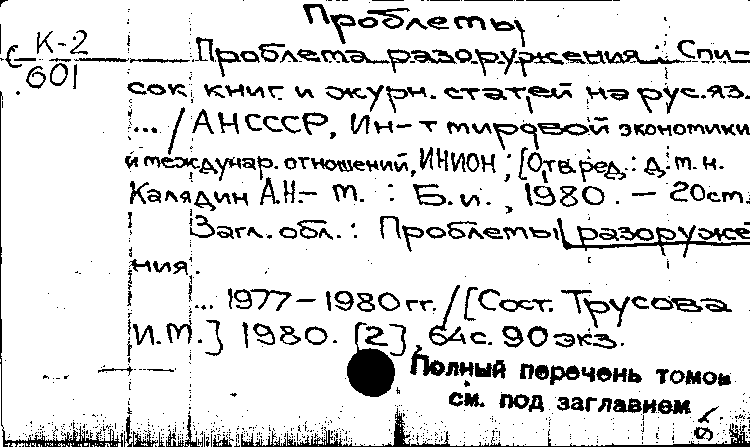 Проблемы
с К-2
601
Проблема разоружения : Спи-
сок книг и журн. статей на рус.яз.
... / АН СССР, Ин-т мировой экономики
и междунар. отношений, ИНИОН ; [Отв. ред.: д. т. н.
Калядин А.Н.- М. : Б. и. , 1980. — 20 cm.
Загл. обл. : Проблемы разоруже
ния.
... 1977-1980 гг. / [Сост. Трусова
И.М.] 1980. [2], 64 с. 90 экз.
Полный перечень томов
см. под заглавием